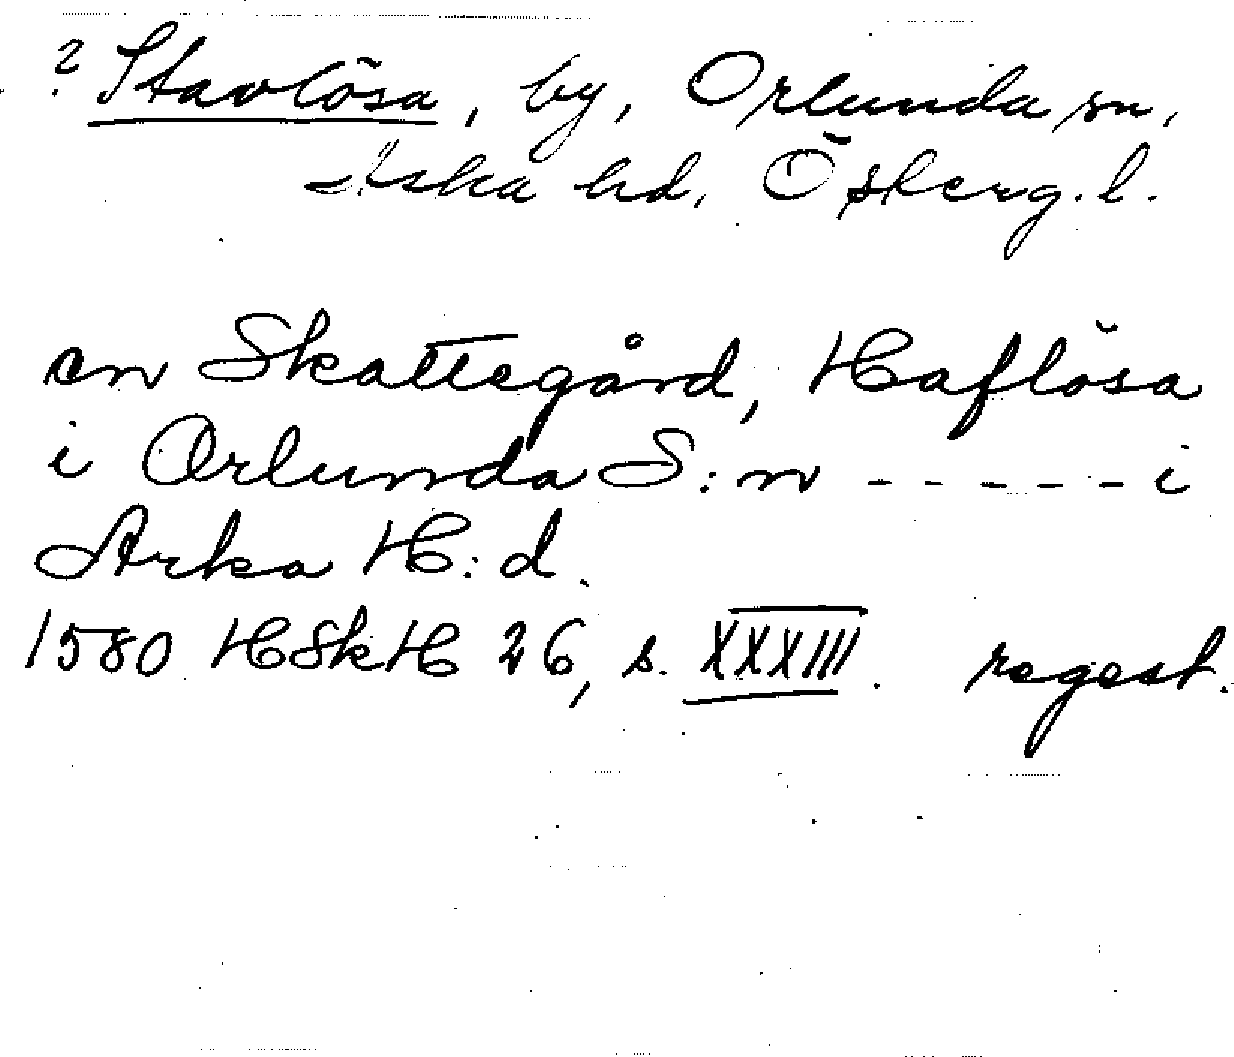 ? Stavlösa, by, Orlunda sn,
Aska hd, Österg.l.
en Skattegård, Haflösa
i Orlunda S:n ----- i
Arka H:d.
1580 HSkH 26, s. XXXIII. regest.